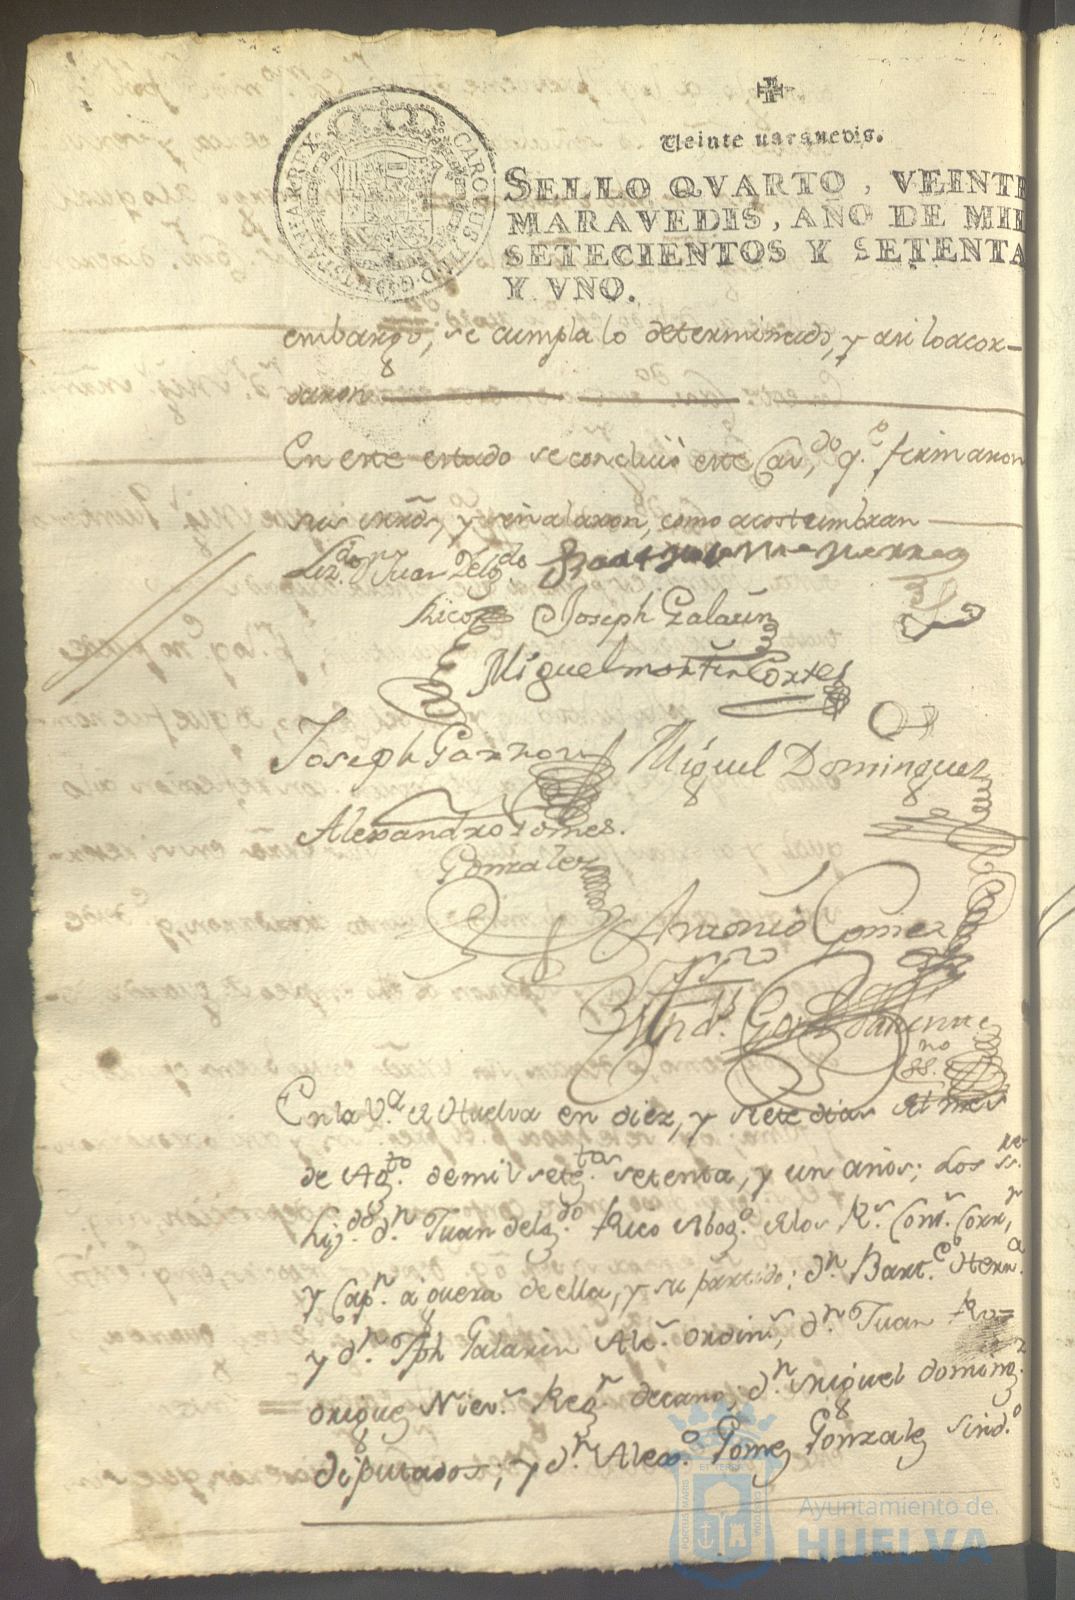 Veinte maravedis.
SELLO QVARTO, VEINTE
MARAVEDIS, AÑO DE MIL
SETECIENTOS Y SETENTA
Y VNO.
CAROLUS III D. G. HISPANIAR. REX
embargo, se cumpla lo determinado, y asi lo acor-
daron
En este estado se concluió este Cav.do q.e firmaron
sus mrds, y señalaron, como acostumbran
Liz.do Dn Juan Delg.do
Rico Joseph Galarin
Miguel Martin Cortes
Joseph Garzon Miguel Dominguez
Alexandro Gomes.
Gonzalez
Antonio Gomez
En la V.a de Huelva en diez, y siete dias del mes
de Ag.to de mil set.tos setenta, y un años; Los SS.res
Liz.do d.n Juan delg.do Rico Abog.o de los R.s Con.s Corr.r
y Cap.n a guerra de ella, y su partido; d.n Bart.e Hern.
y d.n Jph Galarin Alc.s ordin.s, d.n Juan Ro=
origuez Niev.s Reg.r decano, d.n Miguel doming.z
diputados, y d.n Alex.o Gomez Gonzalez Sind.o
Ayuntamiento de
HUELVA